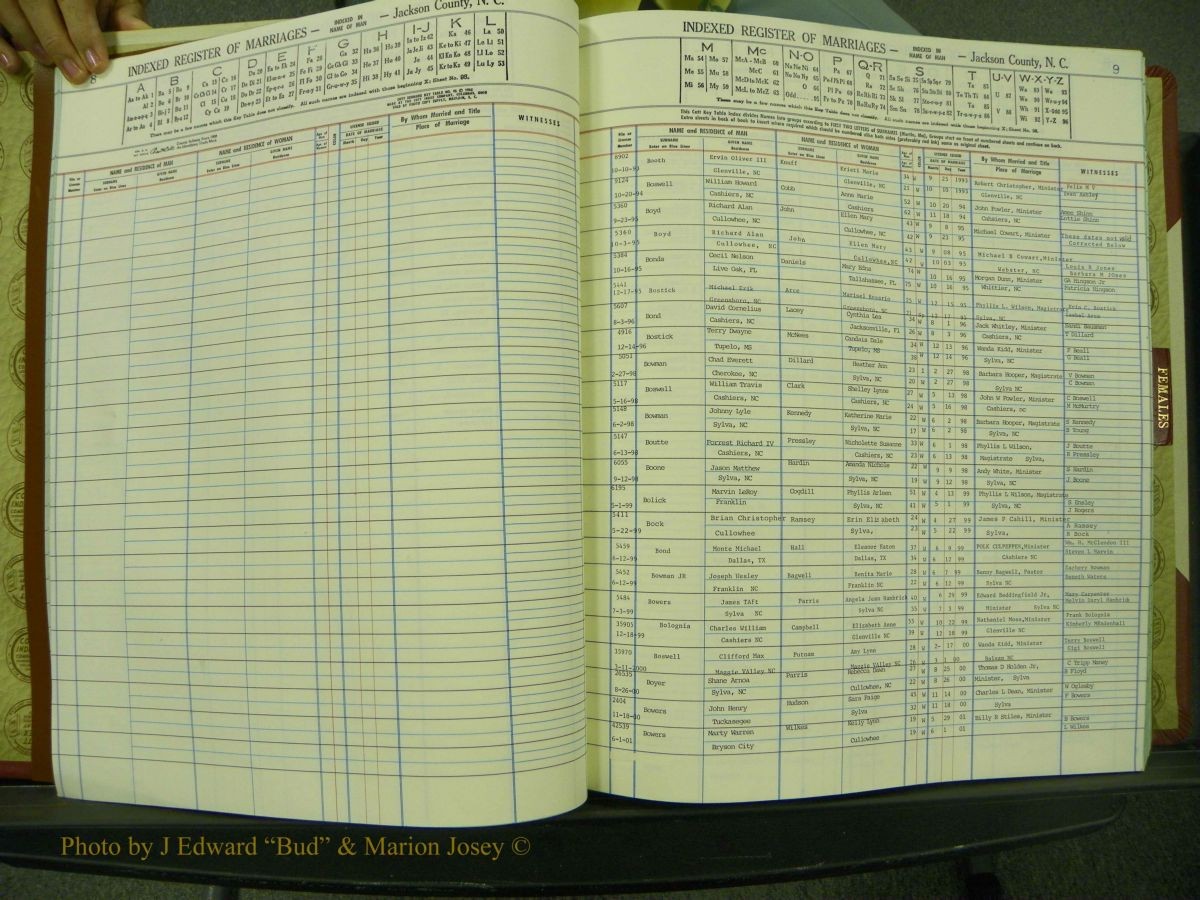 8
INDEXED REGISTER OF MARRIAGES — INDEXED IN NAME OF MAN — Jackson County, N. C.
A B C D E F G H I-J K L
NAME and RESIDENCE of MAN
NAME and RESIDENCE of WOMAN
By Whom Married and Title
Place of Marriage
WITNESSES
INDEXED REGISTER OF MARRIAGES — INDEXED IN NAME OF MAN — Jackson County, N. C. 9
M Mc N-O P Q-R S T U-V W-X-Y-Z
NAME and RESIDENCE of MAN
NAME and RESIDENCE of WOMAN
By Whom Married and Title
Place of Marriage
WITNESSES
8902 Booth Ervin Oliver III Knuff Kristi Marie 34 W 9 25 1993 Robert Christopher, Minister Felix M V
10-10-93 Glenville, NC Glenville, NC 21 10 10 1993 Glenville, NC Dean Ashley
9124 Boswell William Howard Cobb Anne Marie 52 W 10 20 94 John Fowler, Minister Anne Shinn
10-20-94 Cashiers, NC Cashiers 62 W 11 18 94 Cahsiers, NC Lottie Shinn
5360 Boyd Richard Alan John Ellen Mary 43 W 9 8 95 Michael Cowart, Minister These dates not valid
9-23-95 Cullowhee, NC Cullowhee, NC 42 W 9 23 95 Corrected Below
5360 Boyd Richard Alan John Ellen Mary 43 W 9 08 95 Michael B Cowart, Minister Louis R Jones
10-3-95 Cullowhee, NC Cullowhee, NC 42 W 10 03 95 Webster, NC Barbara M Jones
5384 Bonds Cecil Nelson Daniels Mary Edna 74 W 10 16 95 Morgan Dunn, Minister GA Hingson Jr
10-16-95 Live Oak, FL Tallahassee, FL 75 W 10 16 95 Whittier, NC Patricia Hingson
5441 Bostick Michael Erik Arce Marisel Rosario 25 W 12 15 95 Phyllis L. Wilson, Magistrate Eric C. Bostick
12-17-95 Greensboro, NC Greensboro, NC 12 17 95 Sylva, NC Isabel Arce
5607 Bond David Cornelius Lacey Cynthia Lea 34 W 8 1 96 Jack Whitley, Minister Sandi Bausman
8-3-96 Cashiers, NC Jacksonville, Fl 26 W 8 3 96 Cashiers, NC T Dillard
4916 Bostick Terry Dwayne McNees Candais Dale 34 W 12 13 96 Wanda Kidd, Minister F Beall
12-14-96 Tupelo, MS Tupelo, MS 38 W 12 14 96 Sylva, NC G Beall
5051 Bowman Chad Everett Dillard Heather Ann 23 1 2 27 98 Barbara Hooper, Magistrate V Bowman
2-27-98 Cherokee, NC Sylva, NC 20 W 2 27 98 Sylva NC C Bowman
5117 Boswell William Travis Clark Shelley Lynne 27 W 5 13 98 John W Fowler, Minister C Boswell
5-16-98 Cashiers, NC Cashiers, NC 24 W 5 16 98 Cashiers, NC M McMurtry
5148 Bowman Johnny Lyle Kennedy Katherine Marie 22 W 6 2 98 Barbara Hooper, Magistrate S Kennedy
6-2-98 Sylva, NC Sylva, NC 17 W 6 2 98 Sylva, NC B Young
5147 Boutte Forrest Richard IV Pressley Nicholette Susanne 33 W 6 1 98 Phyllis L Wilson, J Boutte
6-13-98 Cashiers, NC Cashiers, NC 23 W 6 13 98 Magistrate Sylva, R Pressley
6055 Boone Jason Matthew Hardin Amanda Nichole 22 W 9 9 98 Andy White, Minister S Hardin
9-12-98 Sylva, NC Sylva, NC 19 W 9 12 98 Sylva, NC J Boone
6195 Bolick Marvin LeRoy Cogdill Phyllis Arleen 51 W 4 13 99 Phyllis L Wilson, Magistrate S Ensley
5-1-99 Franklin Sylva, NC 41 W 5 1 99 Sylva, NC J Rogers
5411 Bock Brian Christopher Ramsey Erin Elizabeth 24 W 4 27 99 James F Cahill, Minister A Ramsey
5-22-99 Cullowhee Sylva, 23 W 5 22 99 Sylva, R Bock
5459 Bond Monte Michael Hall Eleanor Eaton 37 W 6 9 99 POLK CULPEPPER, Minister Wm. H. McClendon III
6-12-99 Dallas, TX Dallas, TX 34 W 6 12 99 Cashiers NC Steven L Marvin
5452 Bowman JR Joseph Wesley Bagwell Benita Marie 28 W 6 7 99 Benny Bagwell, Pastor Zachery Bowman
6-12-99 Franklin NC Franklin NC 22 W 6 12 99 Sylva NC Demeth Waters
5484 Bowers James TAft Parris Angela Jean Hambrick 40 W 6 29 99 Edward Beddingfield Jr, Mary Carpenter
7-3-99 Sylva NC Sylva NC 35 W 7 3 99 Minister Sylva NC Melvin Daryl Hambrick
35905 Bolognia Charles William Campbell Elizabeth Anne 55 W 10 22 99 Nathaniel Moss, Minister Frank Bolognia
12-18-99 Cashiers NC Glenville NC 39 W 12 18 99 Glenville NC Kimberly MEndenhall
35970 Boswell Clifford Max Putnam Amy Lynn 28 W 2- 17 00 Wanda Kidd, Minister Terry Boswell
3-11-2000 Maggie VAlley NC Maggie VAlley NC 26 W 3 1 00 Balsam NC Gigi Boswell
26535 Boyer Shane Arnoa Parris Rebecca Dawn 27 W 8 25 00 Thomas D Holden Jr, C Tripp Maney
8-26-00 Sylva, NC Cullowhee, NC 22 W 8 26 00 Minister, Sylva B Floyd
2404 Bowers John Henry Hudson Sara Paige 45 W 11 14 00 Charles L Dean, Minister W Oglesby
11-18-00 Tuckasegee Sylva 32 W 11 18 00 Sylva F Bowers
42539 Bowers Marty Warren Wilkes Kelly Lynn 19 W 5 29 01 Billy R Stiles, Minister B Bowers
6-1-01 Bryson City Cullowhee 19 W 6 1 01 L Wilkes
FEMALES
Photo by J Edward “Bud” & Marion Josey ©